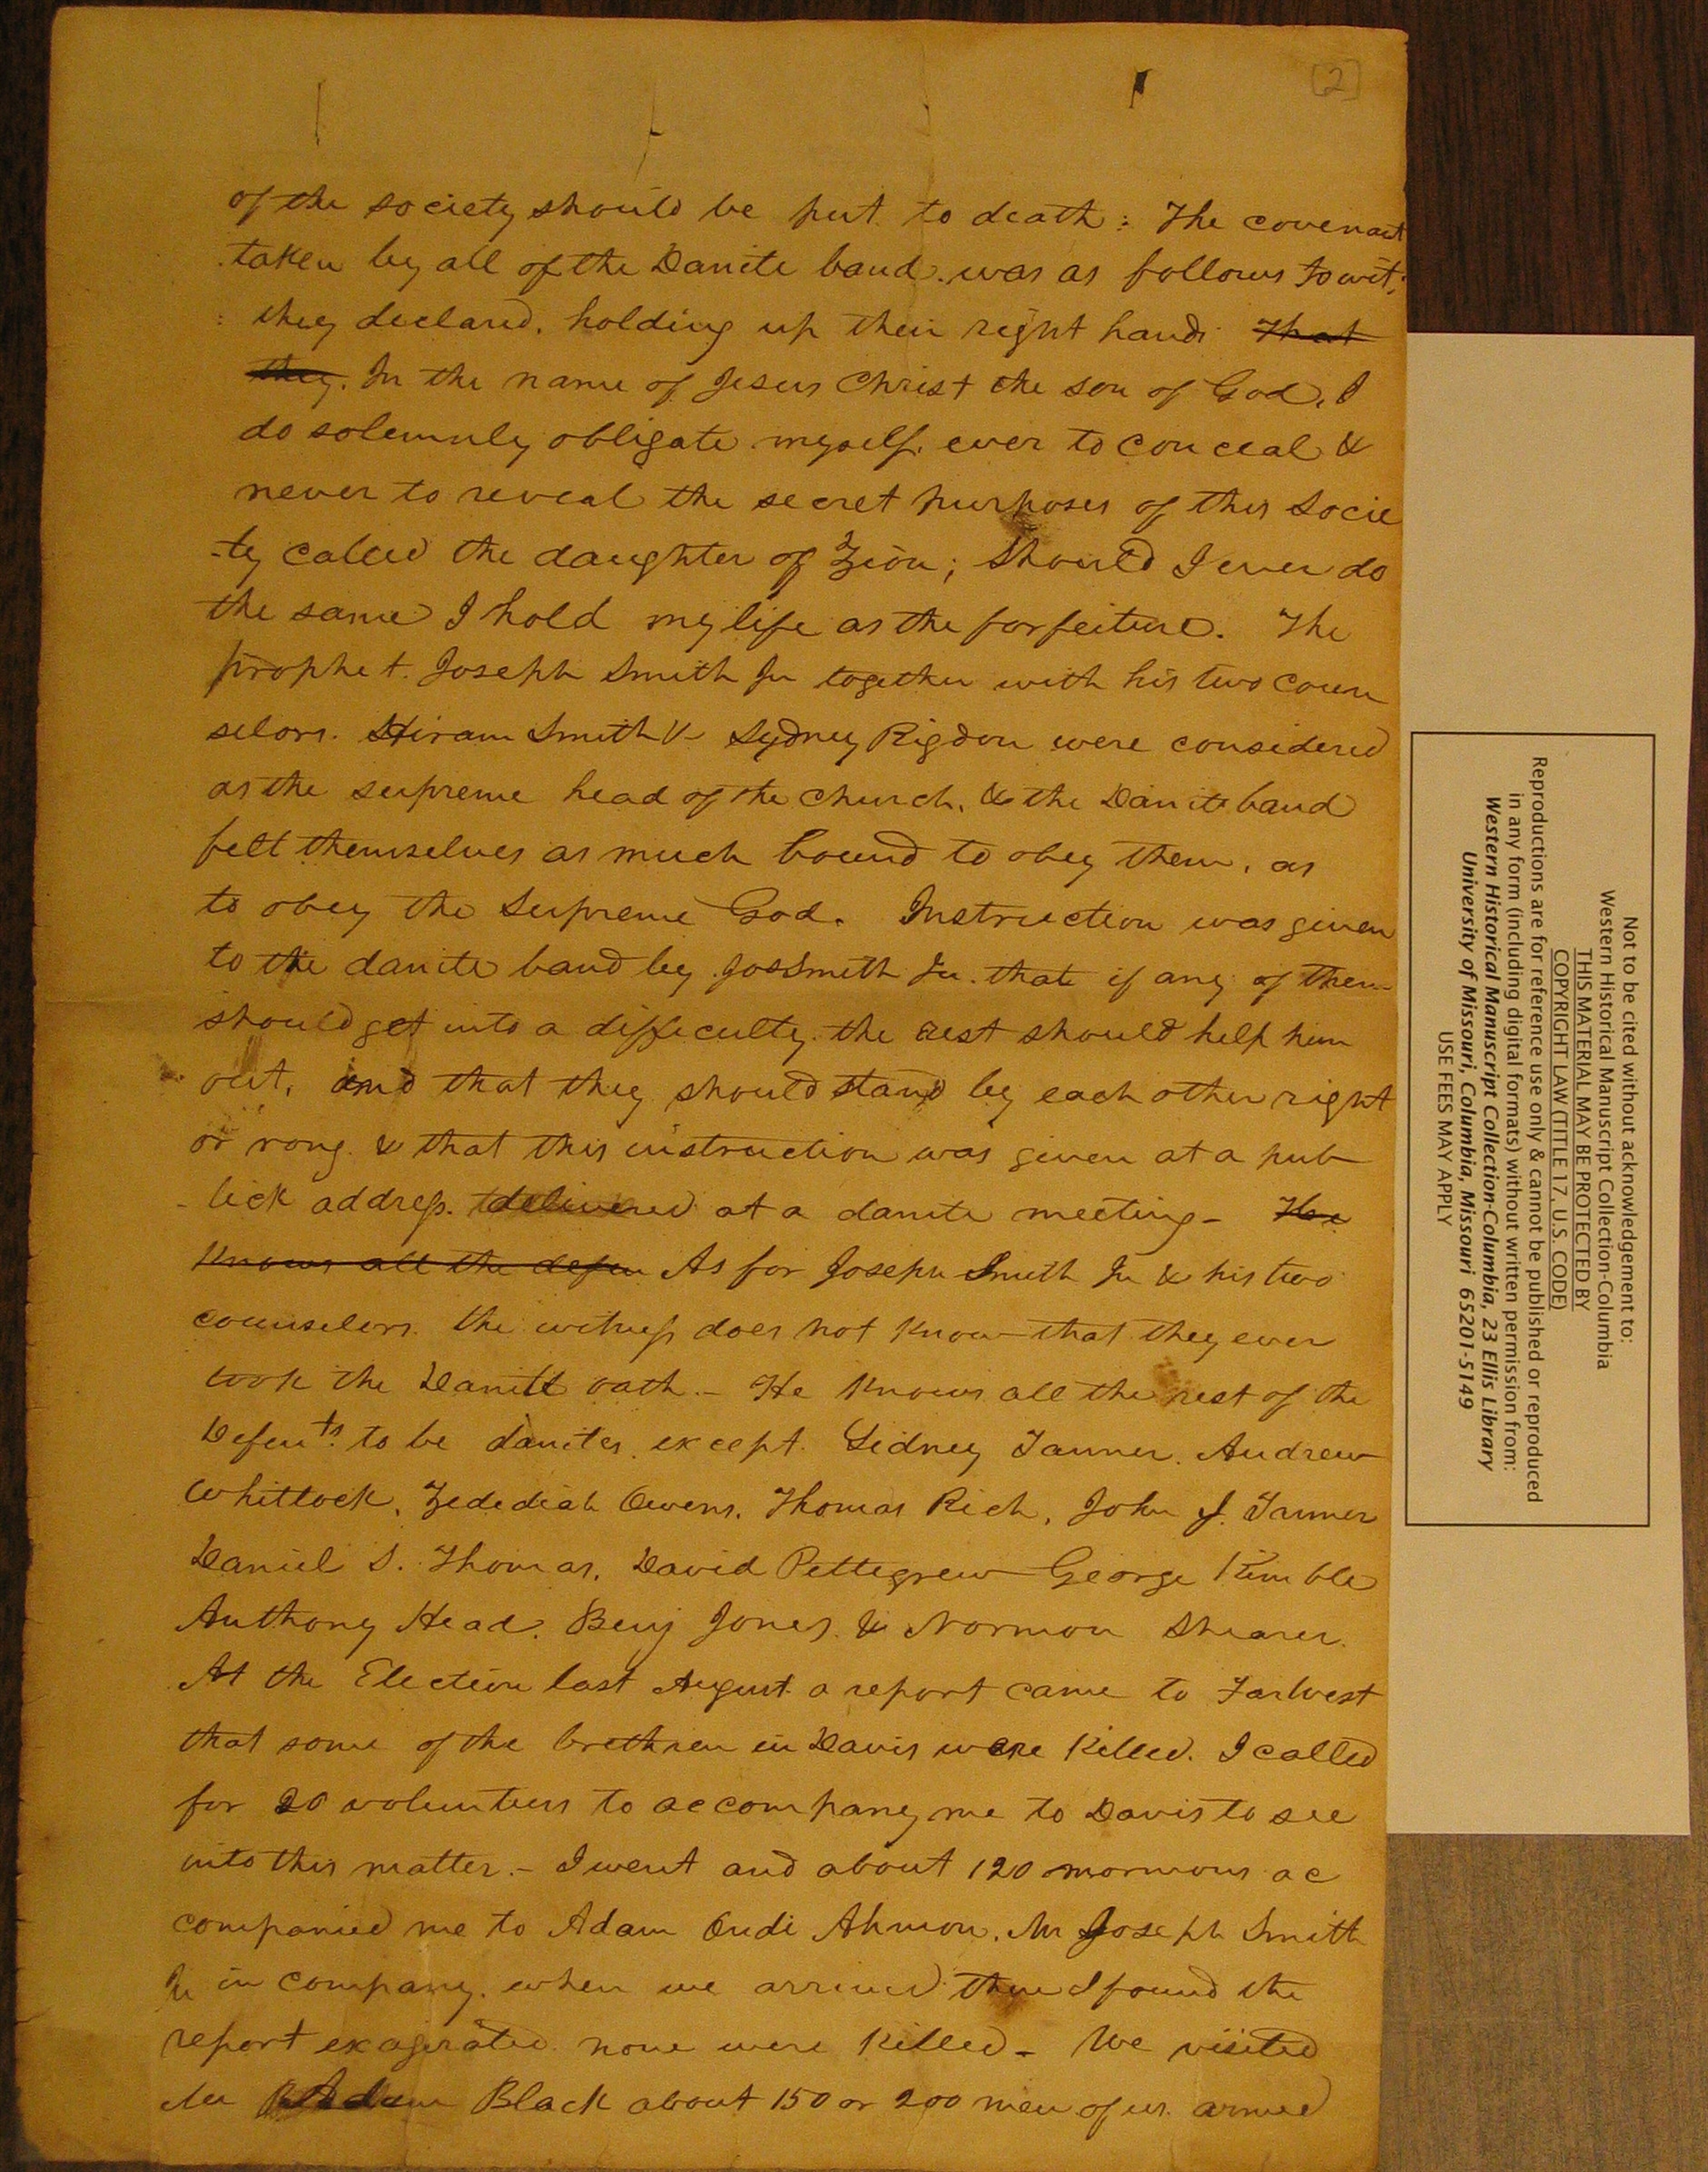 [2]
of the society should be put to death : The covenant
taken by all of the Danite band. was as follows to wit;
they declared, holding up their right hands That
they. In the name of Jesus Christ the son of God, I
do solemnly obligate myself. ever to conceal &
never to reveal the secret purposes of this Socie
-ty called the daughter of Zion; Should I ever do
the same I hold my life as the forfeiture. The
prophet. Joseph Smith Jr together with his two coun
selors. Hiram Smith & Sydney Rigdon were considered
as the supreme head of the church, & the Danite band
felt themselves as much bound to obey them, as
to obey the Supreme God. Instruction was given
to the danite band by Jos Smith Jr. that if any of them
should get into a difficulty. the rest should help him
out, and that they should stand by each other right
or rong. & that this instruction was given at a pub
- lick address. delivered at a danite meeting - He
knows all the defen As for Joseph Smith Jr & his two
counselors. the witness does not know that they ever
took the Danite oath. - He knows all the rest of the
Defents. to be danites. except. Sidney Tanner. Andrew
Whitlock, Zedediah Owens, Thomas Rich, John J. Tanner
Daniel S. Thomas, David Pettegrew George Kimble
Anthony Head. Benj Jones. & Norman Shearer.
At the Election last August a report came to Farwest
that some of the brethren in Davis were killed. I called
for 20 volunteers to accompany me to Davis to see
into this matter. - I went and about 120 mormons ac
companied me to Adam Ondi Ahmon. Mr Joseph Smith
Jr in company. when we arrived there I found the
report exagirated. none were killed - We visited
Mr Adam Black about 150 or 200 men of us. armed
Not to be cited without acknowledgement to:
Western Historical Manuscript Collection-Columbia
THIS MATERIAL MAY BE PROTECTED BY
COPYRIGHT LAW (TITLE 17, U.S. CODE)
Reproductions are for reference use only & cannot be published or reproduced
in any form (including digital formats) without written permission from:
Western Historical Manuscript Collection-Columbia, 23 Ellis Library
University of Missouri, Columbia, Missouri 65201-5149
USE FEES MAY APPLY